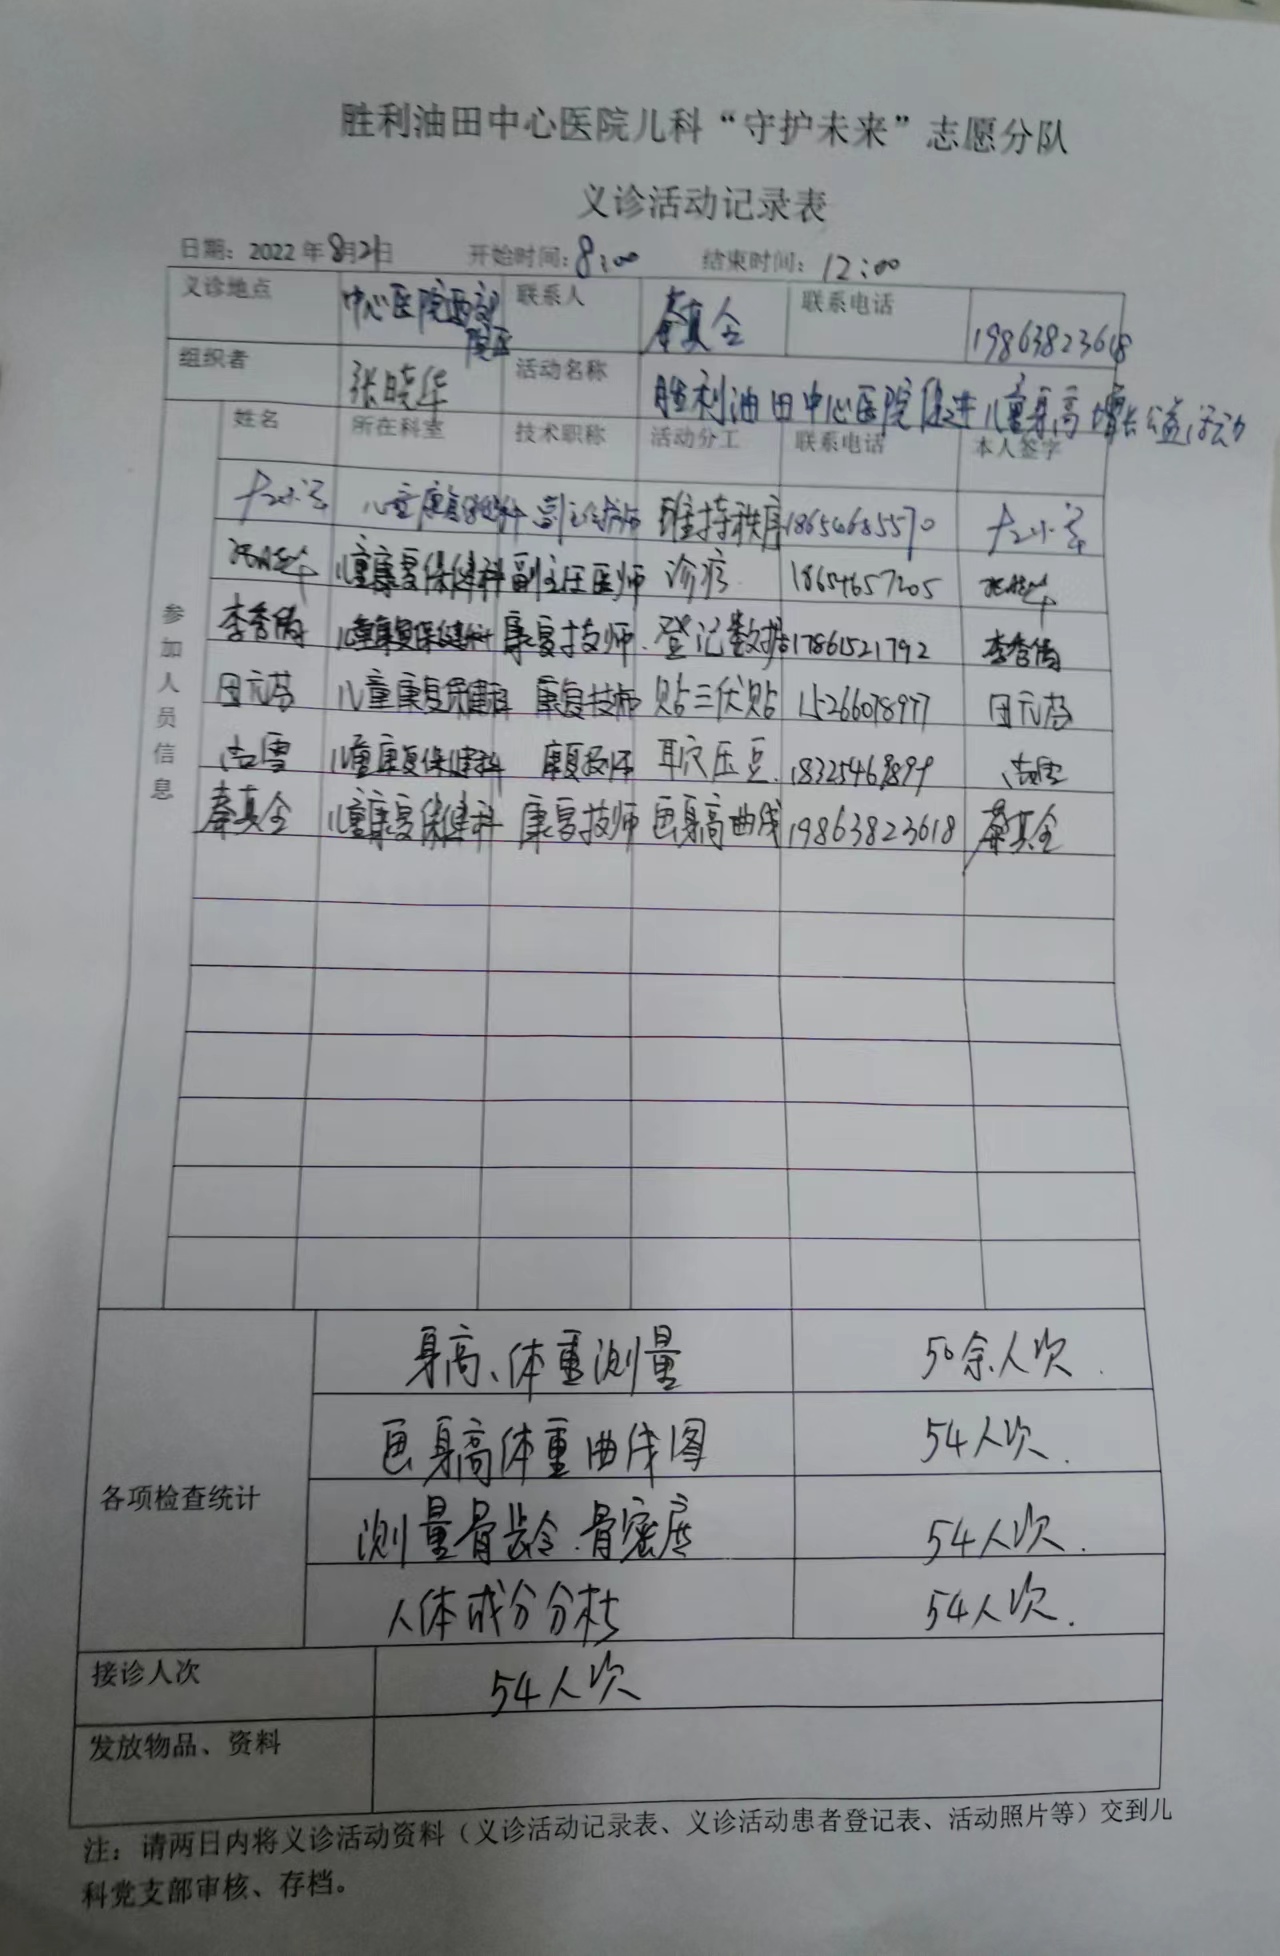 胜利油田中心医院儿科“守护未来”志愿分队
义诊活动记录表
日期：2022年8月21日 开始时间：8:00 结束时间：12:00
义诊地点 中心医院西部院区 联系人 秦真全 联系电话 19863823618
组织者 张晓华 活动名称 胜利油田中心医院促进儿童身高增长公益活动
参加人员信息
姓名 所在科室 技术职称 活动分工 联系电话 本人签字
儿童康复保健科 维持秩序 18654685570
张晓华 儿童康复保健科 副主任医师 诊疗 18654657205 张晓华
李秀倩 儿童康复保健科 康复技师 登记数据 17861521792 李秀倩
田元芬 儿童康复保健科 康复技师 贴三伏贴 15266078977 田元芬
儿童康复保健科 康复技师 耳穴压豆 18325469899
秦真全 儿童康复保健科 康复技师 画身高曲线 19863823618 秦真全
各项检查统计
身高、体重测量 50余人次.
画身高体重曲线图 54人次.
测量骨龄.骨密度 54人次.
人体成分分析 54人次.
接诊人次 54人次
发放物品、资料
注：请两日内将义诊活动资料（义诊活动记录表、义诊活动患者登记表、活动照片等）交到儿
科党支部审核、存档。